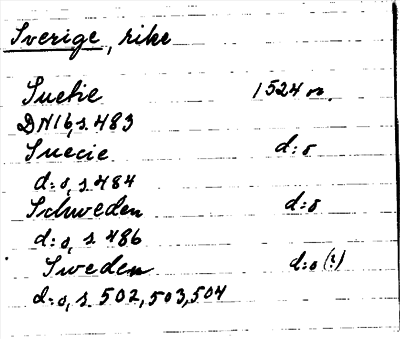 Sverige, rike
Suetie 1524 m.
DN16, s. 483
Suecie d:o
d:o, s. 484
Schweden d:o
d:o, s. 486
Sweden d:o (?)
d:o, s. 502, 503, 504